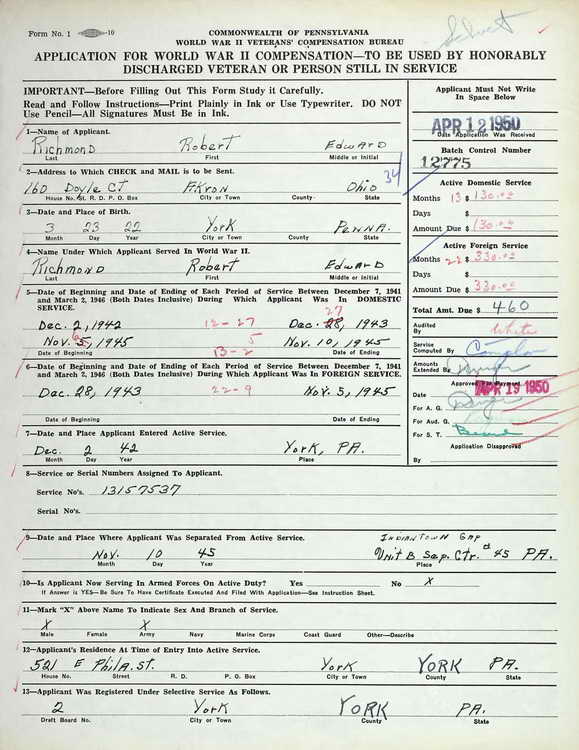 Form No. 1 10
COMMONWEALTH OF PENNSYLVANIA
WORLD WAR II VETERANS' COMPENSATION BUREAU
APPLICATION FOR WORLD WAR II COMPENSATION—TO BE USED BY HONORABLY
DISCHARGED VETERAN OR PERSON STILL IN SERVICE
IMPORTANT—Before Filling Out This Form Study it Carefully.
Read and Follow Instructions—Print Plainly in Ink or Use Typewriter. DO NOT
Use Pencil—All Signatures Must Be in Ink.
1—Name of Applicant.
Richmond Robert Edward
Last First Middle or Initial
2—Address to Which CHECK and MAIL is to be Sent.
34
160 Doyle CT AKron Ohio
House No. St. R. D. P. O. Box City or Town County State
3—Date and Place of Birth.
3 23 22 York Penna.
Month Day Year City or Town County State
4—Name Under Which Applicant Served In World War II.
Richmond Robert Edward
Last First Middle or Initial
5—Date of Beginning and Date of Ending of Each Period of Service Between December 7, 1941
and March 2, 1946 (Both Dates Inclusive) During Which Applicant Was In DOMESTIC
SERVICE.
27
Dec. 2, 1942 12-27 Dec. 28, 1943
Nov. 5, 1945 5 Nov. 10, 1945
Date of Beginning 13-2 Date of Ending
6—Date of Beginning and Date of Ending of Each Period of Service Between December 7, 1941
and March 2, 1946 (Both Dates Inclusive) During Which Applicant Was In FOREIGN SERVICE.
Dec. 28, 1943 22-9 Nov. 5, 1945
Date of Beginning Date of Ending
7—Date and Place Applicant Entered Active Service.
Dec. 2 42 York, PA.
Month Day Year Place
8—Service or Serial Numbers Assigned To Applicant.
Service No's. 13157537
Serial No's.
9—Date and Place Where Applicant Was Separated From Active Service.
Indiantown Gap
Nov. 10 45 Unit B Sep. Ctr. 45 PA.
Month Day Year Place
10—Is Applicant Now Serving In Armed Forces On Active Duty? Yes No X
If Answer is YES—Be Sure To Have Certificate Executed And Filed With Application—See Instruction Sheet.
11—Mark "X" Above Name To Indicate Sex And Branch of Service.
X X
Male Female Army Navy Marine Corps Coast Guard Other—Describe
12—Applicant's Residence At Time of Entry Into Active Service.
521 E Phila. St. York YORK PA.
House No. Street R. D. P. O. Box City or Town County State
13—Applicant Was Registered Under Selective Service As Follows.
2 York YORK PA.
Draft Board No. City or Town County State
Applicant Must Not Write
In Space Below
APR 12 1950
Date Application Was Received
Batch Control Number
12775
Active Domestic Service
Months 13 $ 130.00
Days $
Amount Due $ 130.00
Active Foreign Service
Months 22 $ 330.00
Days $
Amount Due $ 330.00
Total Amt. Due $ 460
Audited
By White
Service
Computed By
Amounts
Extended By
Approved For Payment
APR 19 1950
Date
For A. G.
For Aud. G.
For S. T.
Application Disapproved
By